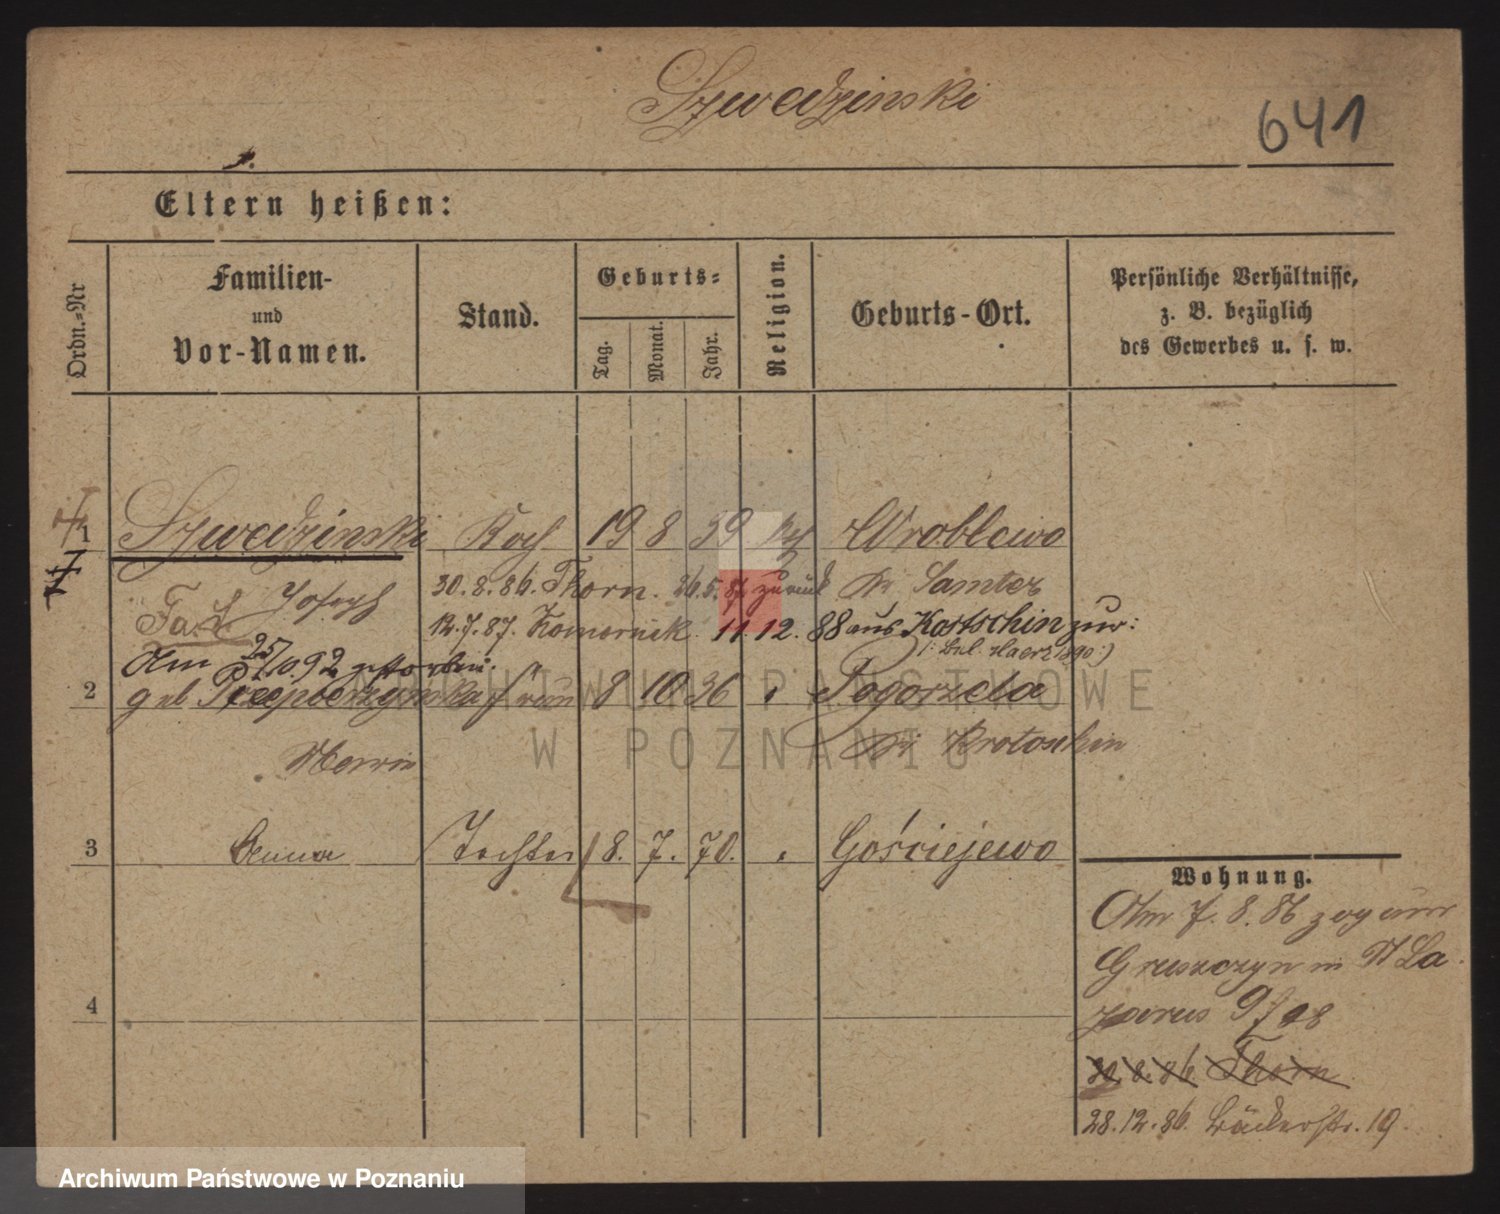 Szwedzinski
641
Eltern heißen:
Ordn.-Nr
Familien-
und
Vor-Namen.
Stand.
Geburts-
Tag.
Monat.
Jahr.
Religion.
Geburts-Ort.
Persönliche Verhältnisse,
z. B. bezüglich
des Gewerbes u. s. w.
1 Szwedzinski Koch 19 8 39 kth Wroblewo
Joseph 30.8.86. Thorn. 26.5.87 zurück Kr. Samter
12.7.87. Komornik. 11.12.88 aus Kostschin zur:
Am 25/10 92 gestorben.
2 geb Frau 8 10 36 " Pogorzela
Marie Kr Krotoschin
3 Anna Tochter 18. 7. 70. " Gościejewo
4
Wohnung.
Am 7.8.86 zog
Gruszczyn in St La-
zarus
30.8.86. Thorn
28.12.86. Bäckerstr. 19.
ARCHIWUM PAŃSTWOWE
W POZNANIU
Archiwum Państwowe w Poznaniu